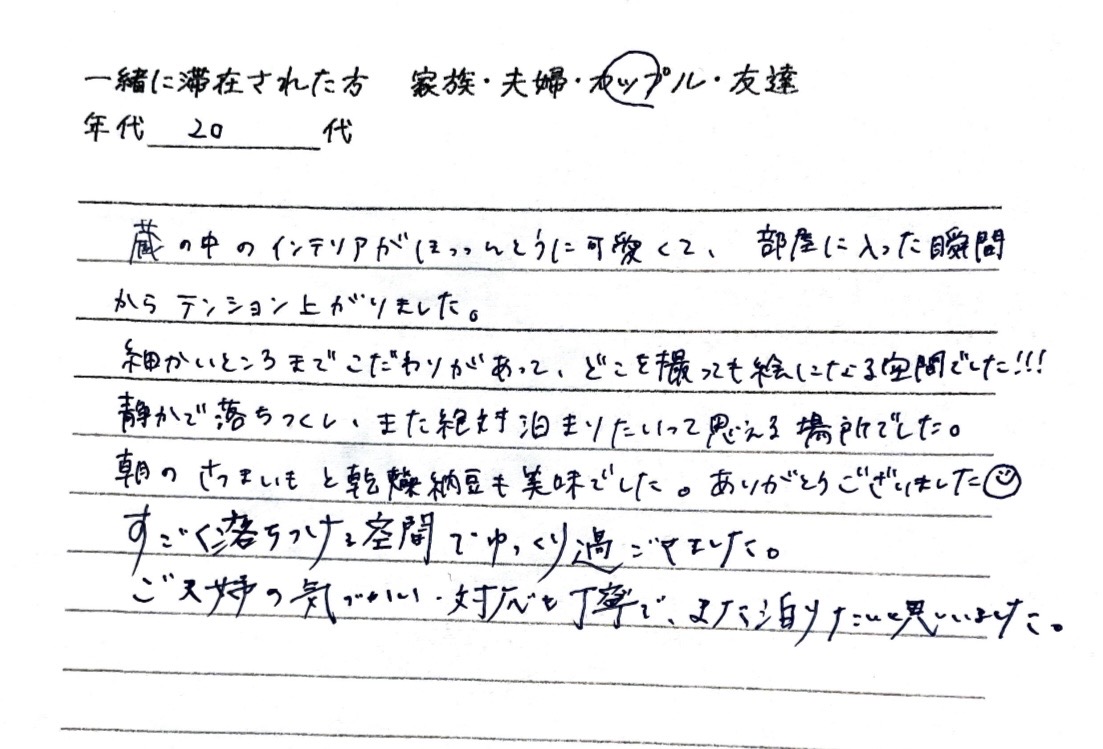 一緒に滞在された方　家族・夫婦・カップル・友達
年代 20 代
蔵の中のインテリアがほっっんとうに可愛くて、部屋に入った瞬間
からテンション上がりました。
細かいところまでこだわりがあって、どこを撮っても絵になる空間でした!!!
静かで落ちつくし、また絶対泊まりたいって思える場所でした。
朝のさつまいもと乾燥納豆も美味でした。ありがとうございました☺
すごく落ちつける空間でゆっくり過ごせました。
ご夫婦の気づかい・対応も丁寧で、また泊りたいと思いました。